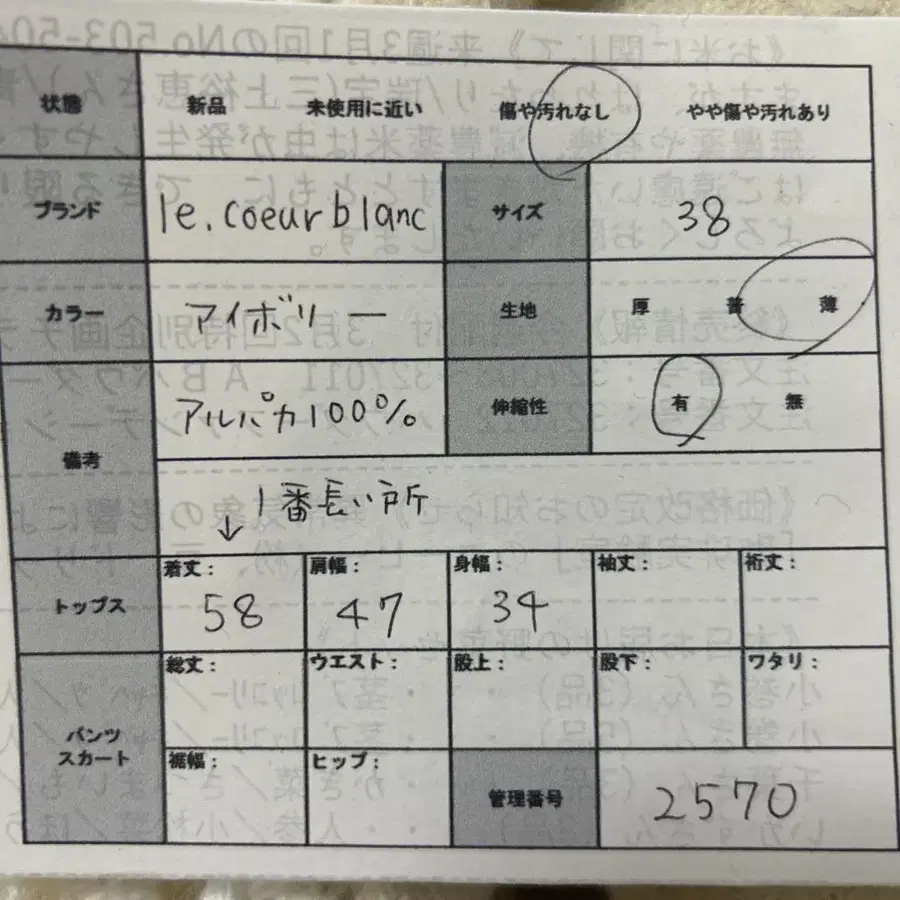 状態 新品 未使用に近い 傷や汚れなし やや傷や汚れあり
ブランド le.coeur blanc サイズ 38
カラー アイボリー 生地 厚 普 薄
備考 アルパカ100% 伸縮性 有 無
1番長い所
トップス 着丈: 58 肩幅: 47 身幅: 34 袖丈: 裄丈:
パンツ スカート 総丈: ウエスト: 股上: 股下: ワタリ:
裾幅: ヒップ: 管理番号 2570